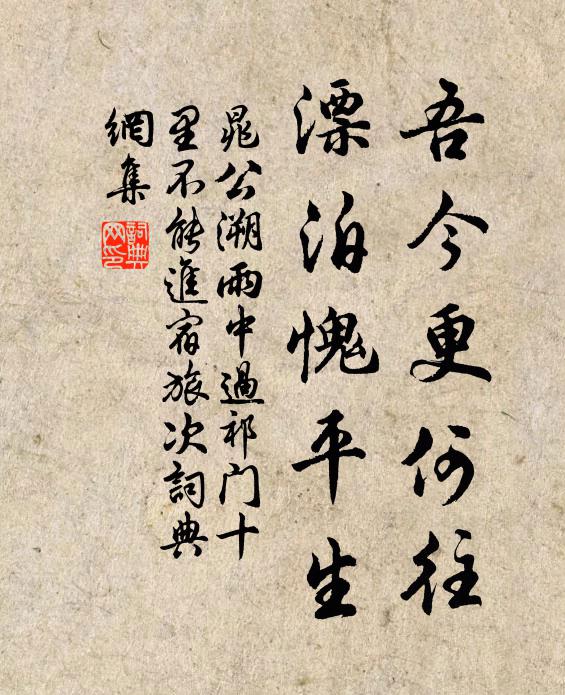 吾今更何往
漂泊愧平生
晁公溯雨中過祁门十
里不能進宿旅次詞典
網集
詞典
网印